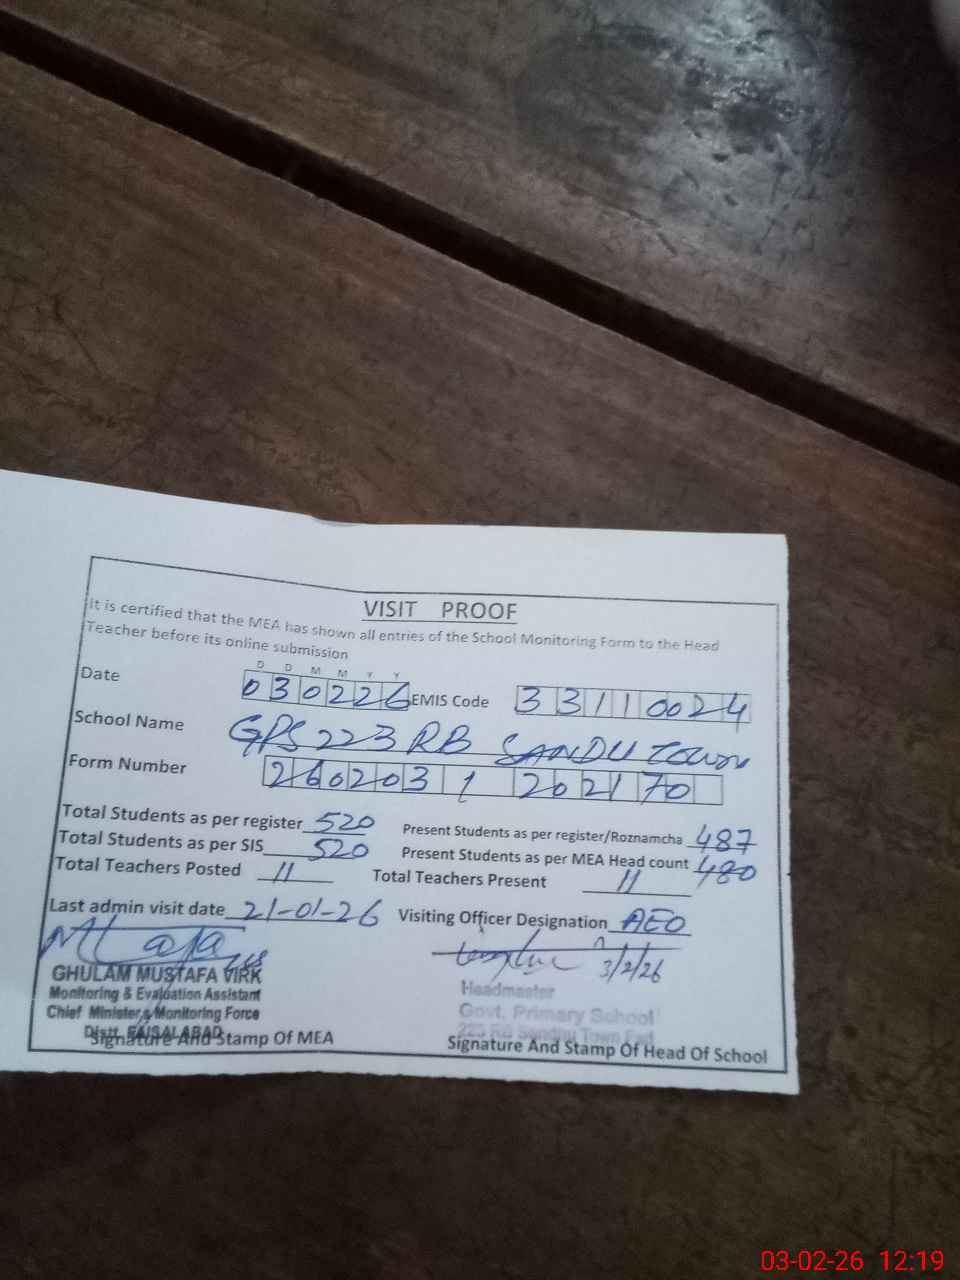 VISIT PROOF
It is certified that the MEA has shown all entries of the School Monitoring Form to the Head
Teacher before its online submission
D D M M Y Y
Date 030226 EMIS Code 33110024
School Name GPS 223 RB SANDU TOWN
Form Number 2602031 202170
Total Students as per register 520 Present Students as per register/Roznamcha 487
Total Students as per SIS 520 Present Students as per MEA Head count 480
Total Teachers Posted 11 Total Teachers Present 11
Last admin visit date 21-01-26 Visiting Officer Designation AEO
3/2/26
GHULAM MUSTAFA VIRK
Monitoring & Evaluation Assistant
Chief Minister's Monitoring Force
Distt. FAISALABAD
Signature And Stamp Of MEA
Headmaster
Govt. Primary School
Town
Signature And Stamp Of Head Of School
03-02-26 12:19